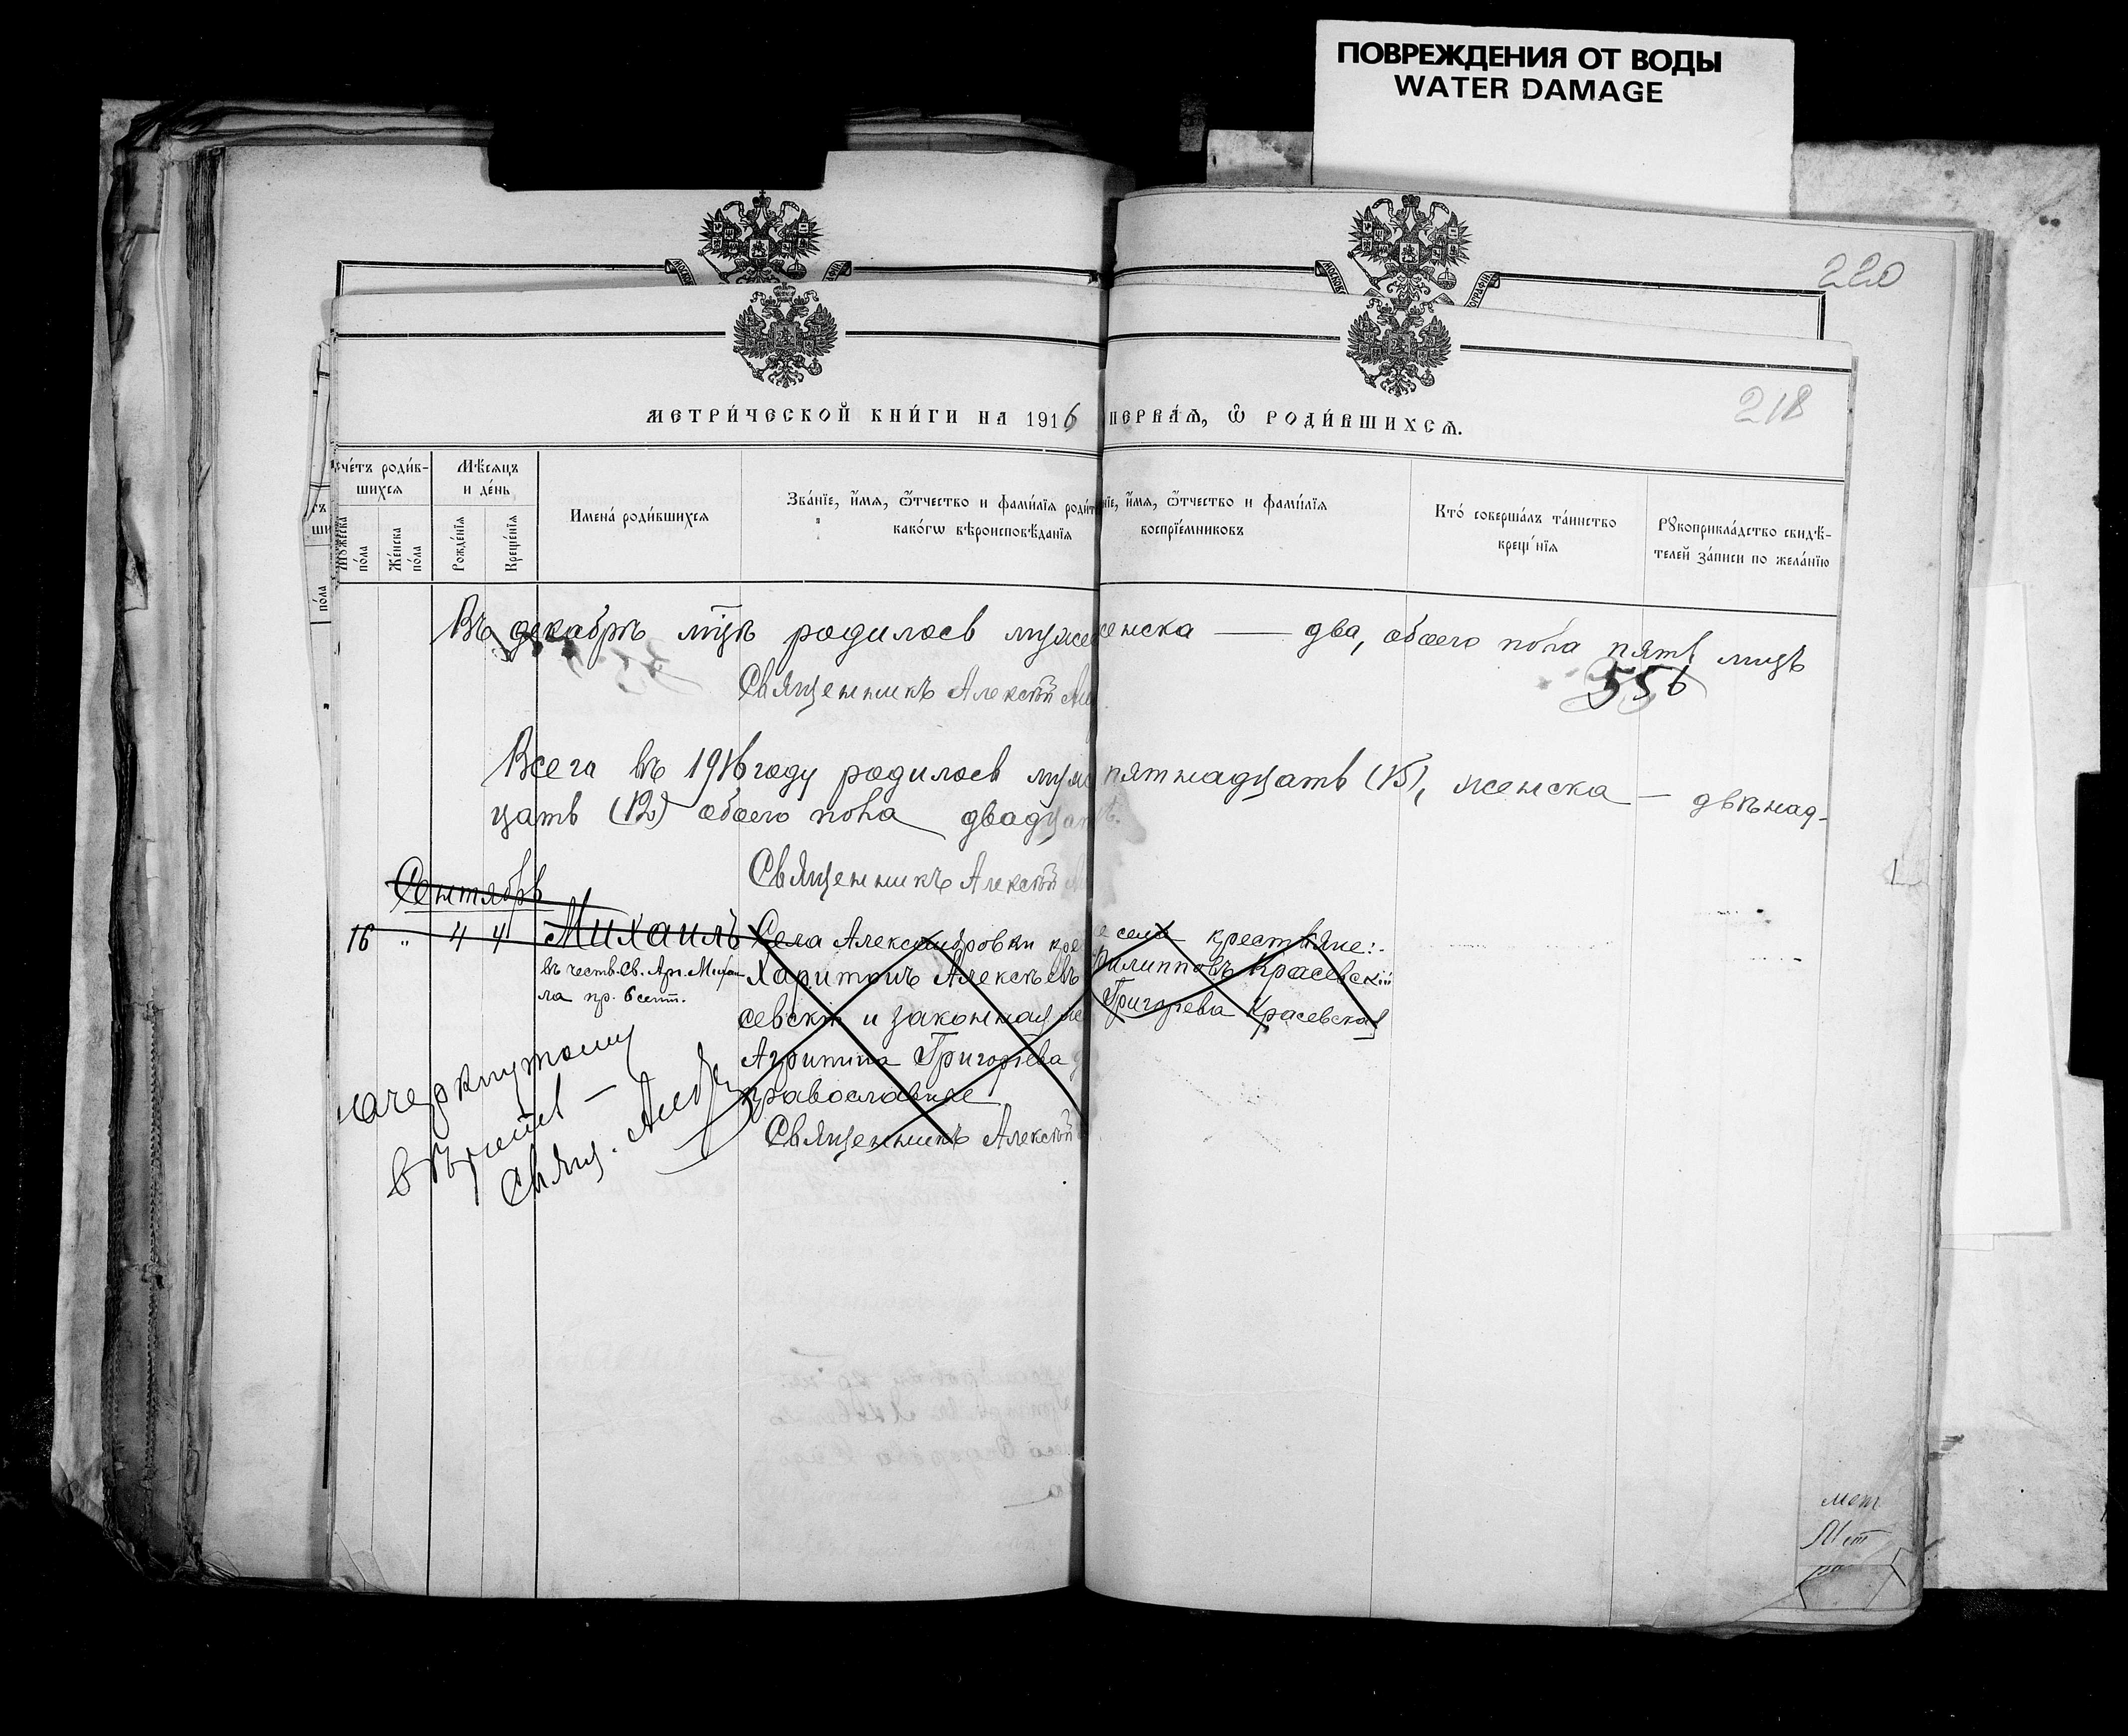 ПОВРЕЖДЕНИЯ ОТ ВОДЫ
WATER DAMAGE
220
218
МЕТРИ́ЧЕСКОЙ КНИ́ГИ НА 1916
ПЕРВА́Ѧ, Ѽ РОДИ́ВШИХСѦ.
счётъ роди́в-
шихсѧ
Мѣ́сѧцъ
и де́нь
Мꙋ́жеска
по́ла
Же́нска
по́ла
Рожде́нїѧ
Креще́нїѧ
Имена́ роди́вшихсѧ
Зва́нїе, и́мѧ, ѻ҆́тчество и фами́лїѧ роди́т
како́гѡ вѣроисповѣ́данїѧ
нїе, и́мѧ, ѻ҆́тчество и фами́лїѧ
воспрїе́мниковъ
Кто̀ соверша́лъ та́инство
креще́нїѧ
Рꙋкоприкла́дство свидѣ́-
телей за́писи по жела́нїю
Въ декабрѣ мцѣ родилось мужес
женска — два, обоего пола пять лицъ
Священникъ Алексѣй
556
Всего въ 1916 году родилось муж
пятнадцать (15), женска — двѣнад-
цать (12) обоего пола двадцат
Священникъ Алексѣй
Сентябрь
16 " 4 4 Михаилъ
въ честь Св. Арх. Михаи
ла пр. 6 сент.
Села Александровки кре
Харитонъ Алексѣевъ
севскій и законная же
Агрипина Григорьева
православные
Священникъ Алексѣй
села крестьяне:-
Филипповъ Красевскій
Григорьева Красевская
зачеркнутому
вѣрить —
Свящ.
мет
Мет